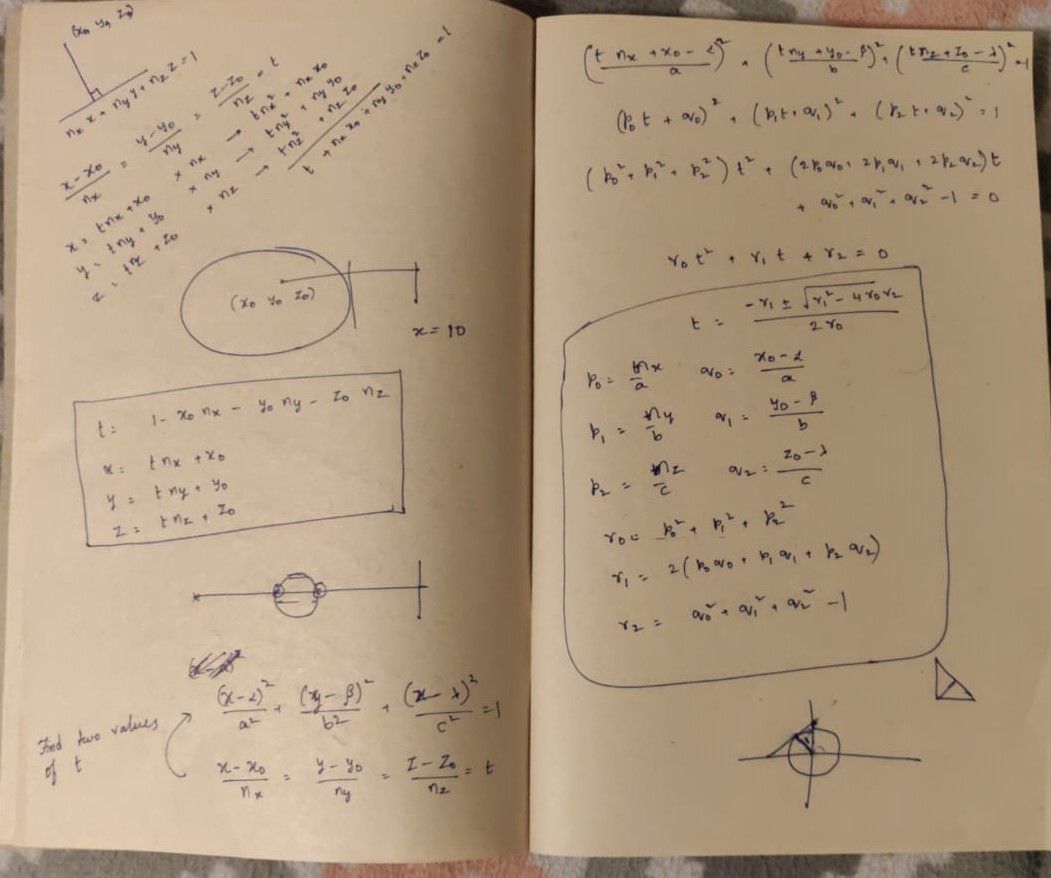 (x₀ y₀ z₀)
nₓ x + n_y y + n_z z = 1
(x - x₀)/nₓ = (y - y₀)/n_y = (z - z₀)/n_z = t
x = t nₓ + x₀ × nₓ → t nₓ² + nₓ x₀
y = t n_y + y₀ × n_y → t n_y² + n_y y₀
z = t z + z₀ × n_z → t n_z² + n_z z₀
t + nₓ x₀ + n_y y₀ + n_z z₀ = 1
(x₀ y₀ z₀)
x = 10
t = 1 - x₀ nₓ - y₀ n_y - z₀ n_z
x = t nₓ + x₀
y = t n_y + y₀
z = t n_z + z₀
Find two values
of t
(x - α)²/a² + (y - β)²/b² + (x - λ)²/c² = 1
(x - x₀)/nₓ = (y - y₀)/n_y = (z - z₀)/n_z = t
((t nₓ + x₀ - α)/a)² + ((t n_y + y₀ - β)/b)² + ((t n_z + z₀ - λ)/c)² = 1
(p₀ t + q₀)² + (p₁ t + q₁)² + (p₂ t + q₂)² = 1
(p₀² + p₁² + p₂²) t² + (2p₀q₀ + 2p₁q₁ + 2p₂q₂) t
+ q₀² + q₁² + q₂² - 1 = 0
r₀ t² + r₁ t + r₂ = 0
t = (-r₁ ± √(r₁² - 4 r₀ r₂))/(2 r₀)
p₀ = nₓ/a q₀ = (x₀ - α)/a
p₁ = n_y/b q₁ = (y₀ - β)/b
p₂ = n_z/c q₂ = (z₀ - λ)/c
r₀ = p₀² + p₁² + p₂²
r₁ = 2(p₀ q₀ + p₁ q₁ + p₂ q₂)
r₂ = q₀² + q₁² + q₂² - 1